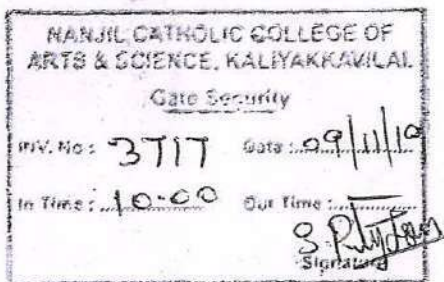 NANJIL CATHOLIC COLLEGE OF
ARTS & SCIENCE, KALIYAKKAVILAI.
Gate Security
INV. No : 3717 Date : 09/11/10
In Time : 10-00 Out Time :
Signature